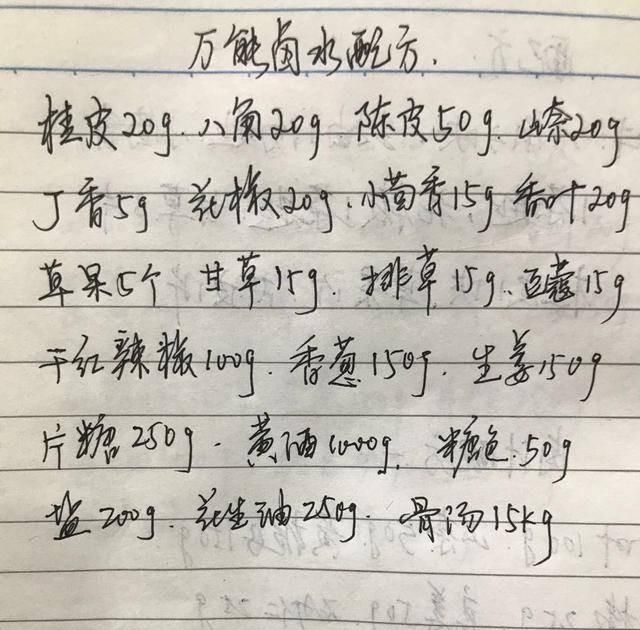 万能卤水配方.
桂皮20g.八角20g 陈皮50g.山奈20g
丁香5g 花椒20g.小茴香15g 香叶20g
草果5个 甘草15g.排草15g.豆蔻15g
干红辣椒100g.香葱150g.生姜150g
片糖250g.黄酒1000g.糖色.50g
盐200g.花生油250g.骨汤15kg